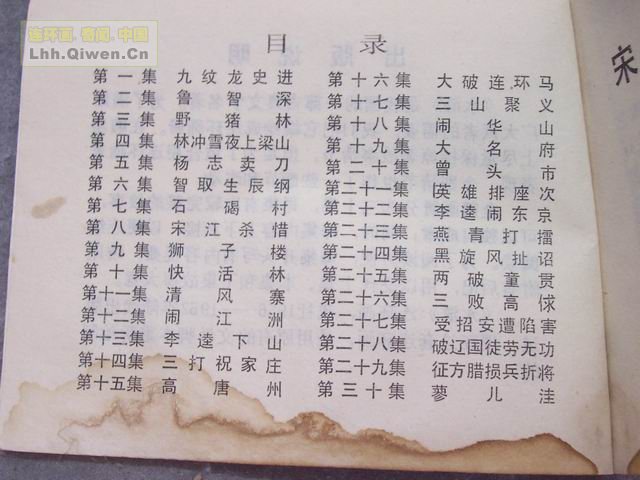 连环画.奇闻.中国
Lhh.Qiwen.Cn
目录
第一集 九纹龙史进
第二集 鲁智深
第三集 野猪林
第四集 林冲雪夜上梁山
第五集 杨志卖刀
第六集 智取生辰纲
第七集 石碣村
第八集 宋江杀惜
第九集 狮子楼
第十集 快活林
第十一集 清风寨
第十二集 闹江洲
第十三集 李逵下山
第十四集 三打祝家庄
第十五集 高唐州
第十六集 大破连环马
第十七集 三山聚义
第十八集 闹华山
第十九集 大名府
第二十集 曾头市
第二十一集 英雄排座次
第二十二集 李逵闹东京
第二十三集 燕青打擂
第二十四集 黑旋风扯诏
第二十五集 两破童贯
第二十六集 三败高俅
第二十七集 受招安遭陷害
第二十八集 破辽国徒劳无功
第二十九集 征方腊损兵折将
第三十集 蓼儿洼
宋